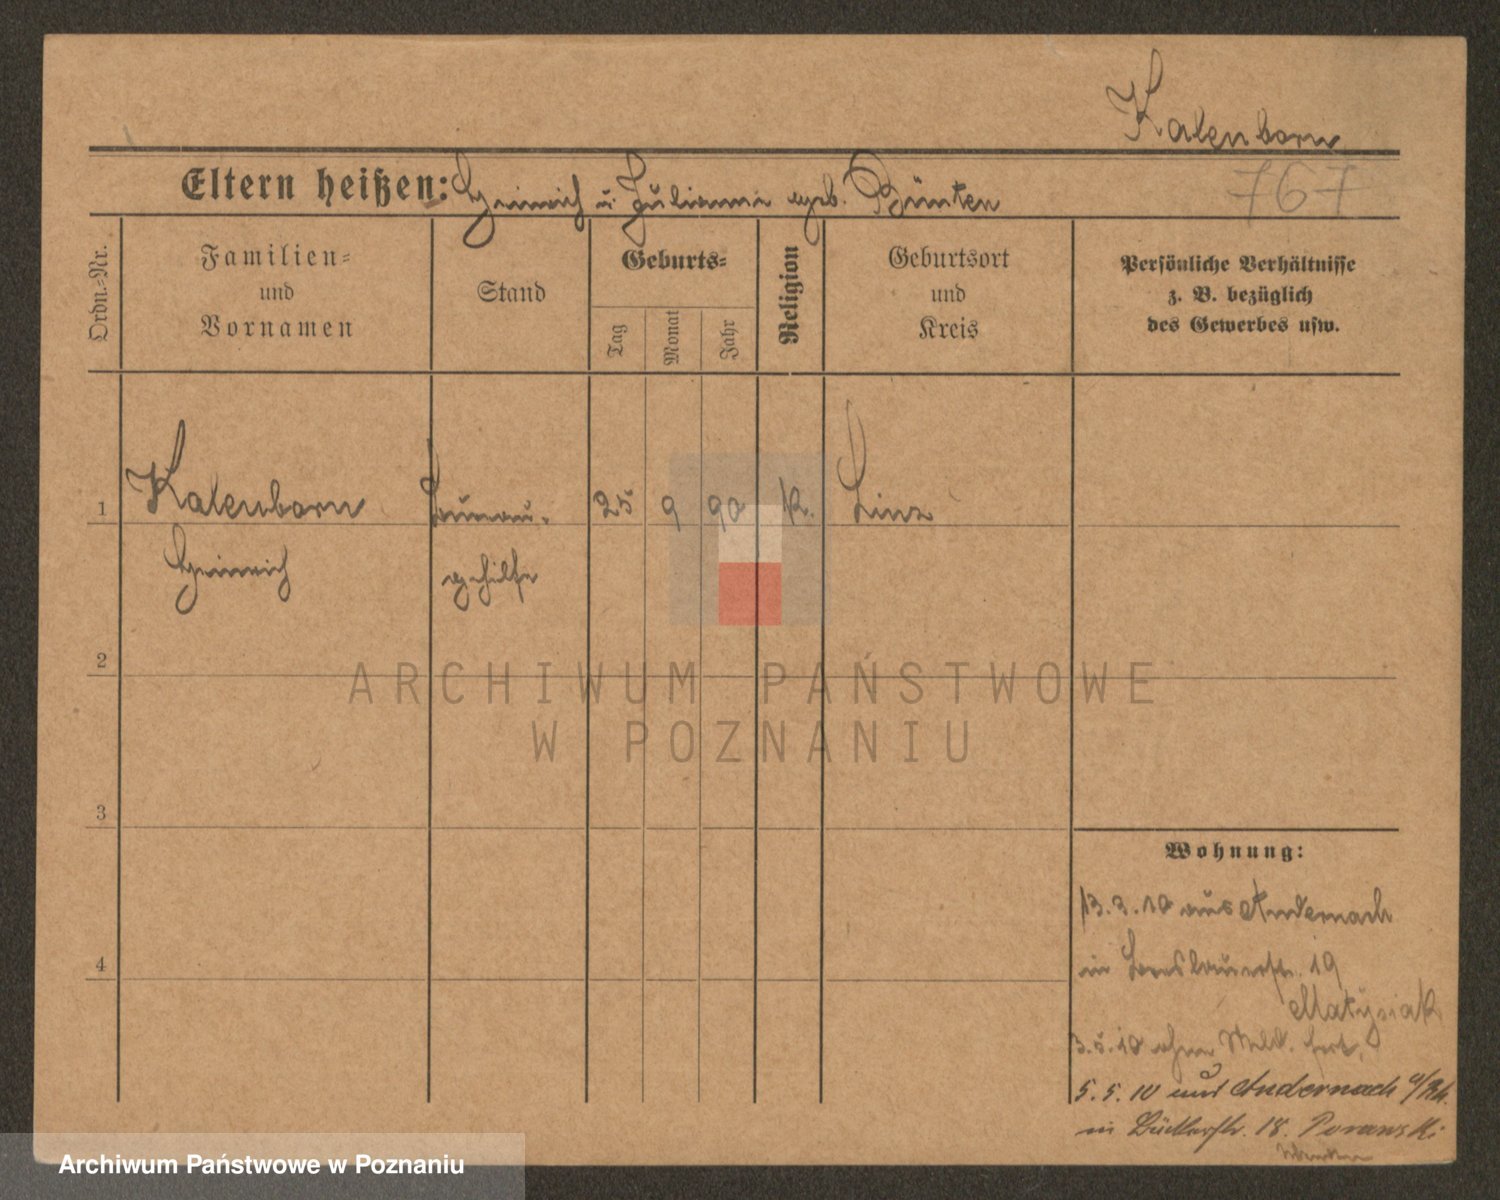 Kalenborn
Eltern heißen: Heinrich u. Julianna geb. Bünten
767
Ordn.-Nr.
Familien-
und
Vornamen
Stand
Geburts-
Tag
Monat
Jahr
Religion
Geburtsort
und
Kreis
Persönliche Verhältnisse
z. B. bezüglich
des Gewerbes usw.
1
Kalenborn
Heinrich
gehilfe
25
9
90
k.
Linz
2
ARCHIWUM PAŃSTWOWE
W POZNANIU
3
4
Wohnung:
13.3.10 aus Andernach
in 19
Matysiak
3.5.10 ohne Meld. fort.
5.5.10 aus Andernach a/Rh.
in 18.
Archiwum Państwowe w Poznaniu